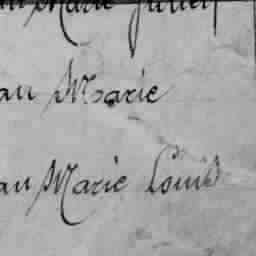 an Marie Julien
an Marie
an Marie Louis